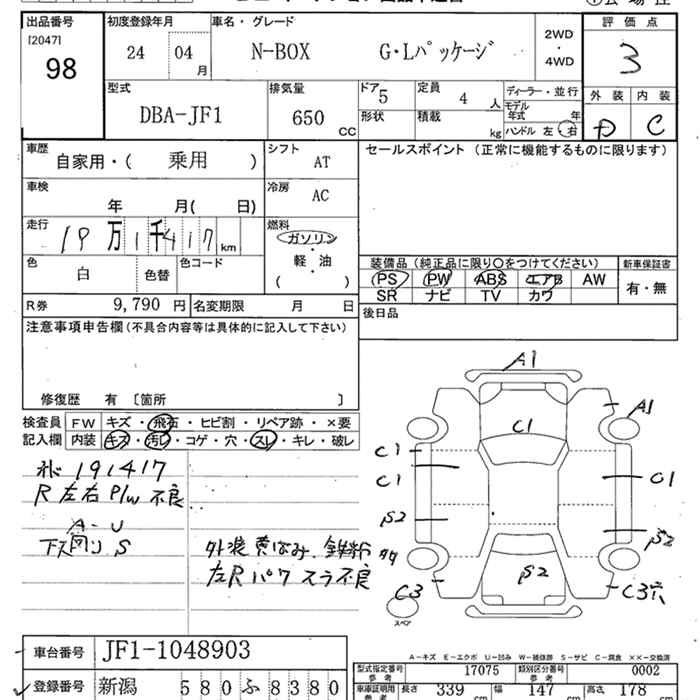 出品番号 初度登録年月 車名・グレード 評価点
[2047]
98 24 04月 N-BOX G・Lパッケージ 2WD・4WD 3
型式 排気量 ドア 定員 ディーラー・並行 外装 内装
DBA-JF1 650cc 5 4人 モデル年式 年
形状 積載 kg ハンドル 左 右 D C
車歴 自家用・(乗用) シフト AT セールスポイント(正常に機能するものに限ります)
車検 年 月(日) 冷房 AC
走行 19万1千417km 燃料 ガソリン・軽・油( )
色 白 色替 色コード
装備品(純正品に限り○をつけてください) 新車保証書
PS PW ABS エアB AW 有・無
SR ナビ TV カワ
R券 9,790円 名変期限 月 日
後日品
注意事項申告欄(不具合内容等は具体的に記入して下さい)
修復歴 有〔箇所 〕
検査員 FW キズ・飛石・ヒビ割・リペア跡・×要
記入欄 内装 キズ・汚レ・コゲ・穴・スレ・キレ・破レ
191417
R左右P/W不良
A-U
S
左R パワスラ不良
A1
A1
C1
C1
C1
C1
S2
S2
S2
C3
C3穴
スペア
A-キズ E-エクボ U-凹み W-補修跡 S-サビ C-腐食 ××-交換済
車台番号 JF1-1048903
型式指定番号 参考 17075 類別区分番号 参考 0002
登録番号 新潟 580 ふ 8380
車庫証明用 参考 長さ 339cm 幅 147cm 高さ 178cm